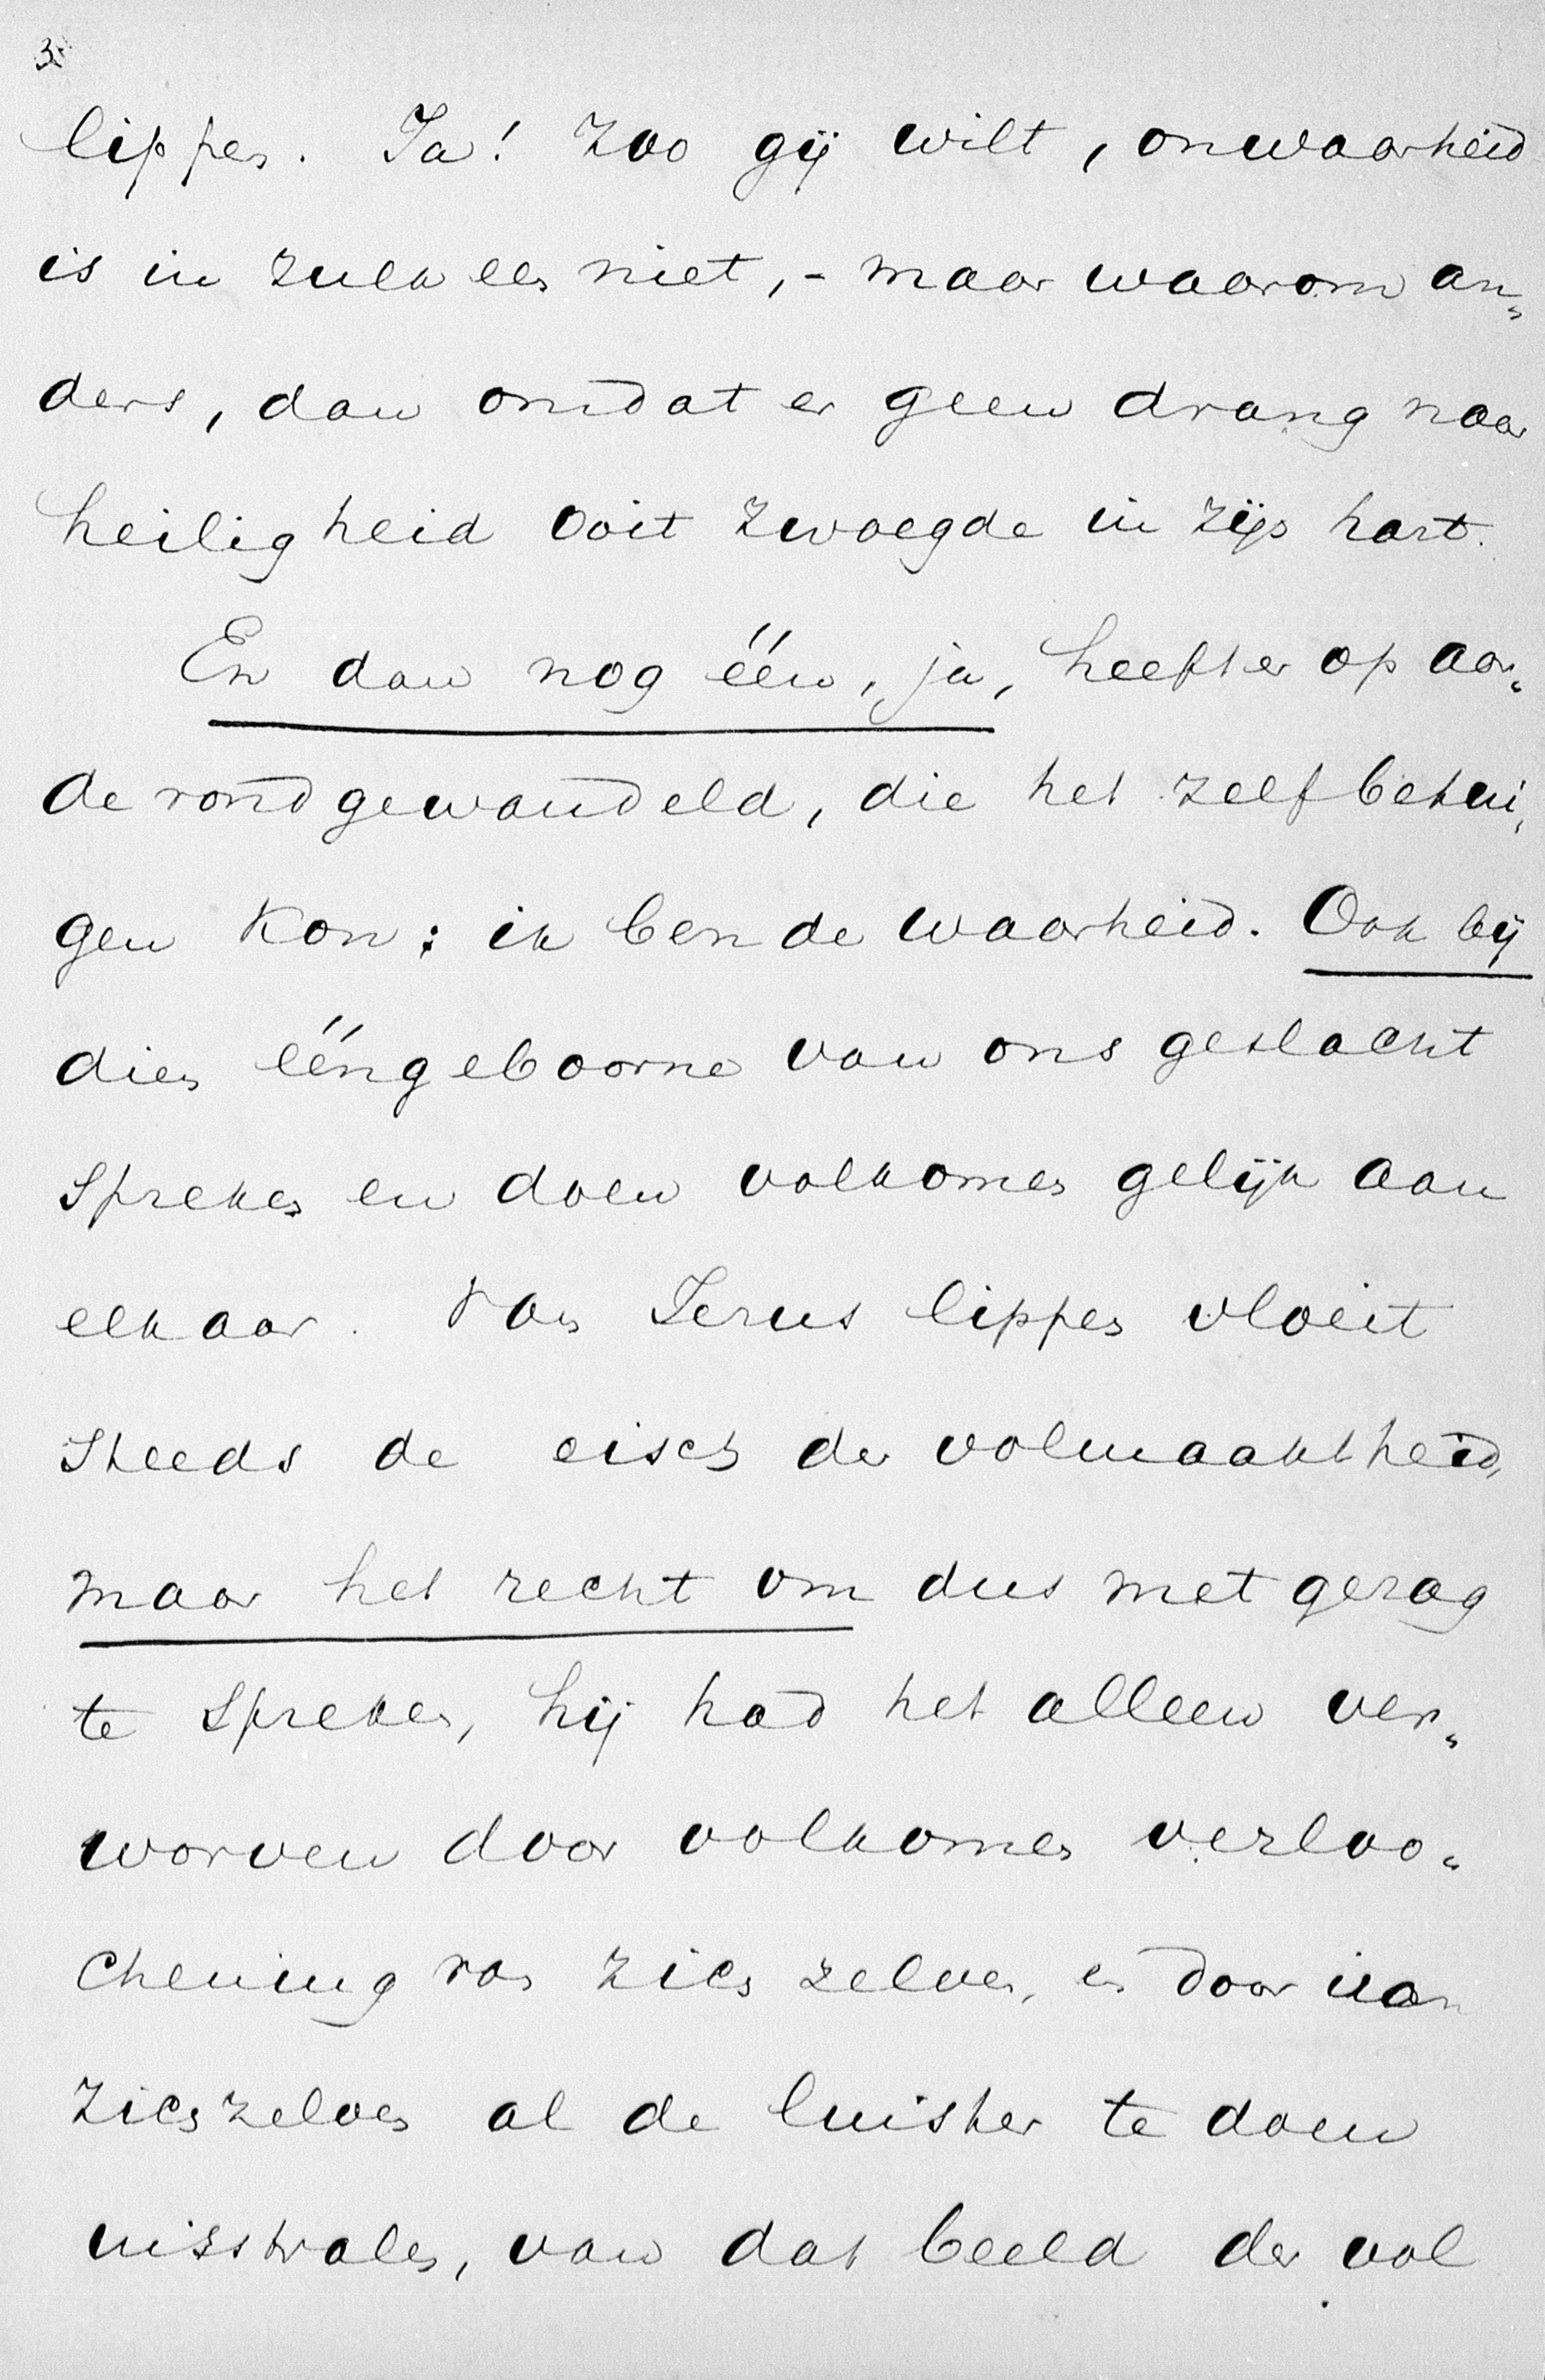 3.
lippen. Ja! zoo gij wilt, onwaarheid
is in zulk een niet, - maar waarom an„
ders, dan omdat er geen drang naar
heiligheid ooit zwoegde in zijn hart.
En dan nog één, ja, heeft er op aar„
de rondgewandeld, die het zelf betui„
gen kon: ik ben de waarheid. Ook bij
dien ééngeboorne van ons geslacht
spreken en doen volkomen gelijk aan
elkaar. Van Jezus lippen vloeit
steeds de eisch der volmaaktheid,
maar het recht om dus met gezag
te spreken, hij had het alleen ver„
worven door volkomen verloo„
chening van zich zelven, en door van
zichzelven al de luister te doen
uitstralen, van dat beeld der vol